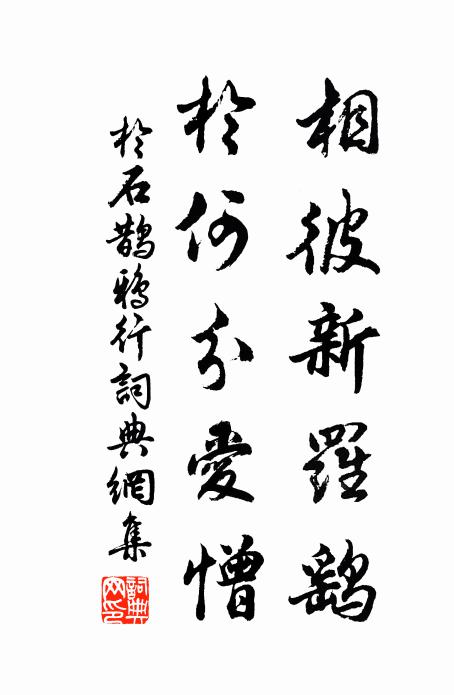 相彼新羅鷂
於何分愛憎
於石鵲鴉行詞典網集
詞典
网印